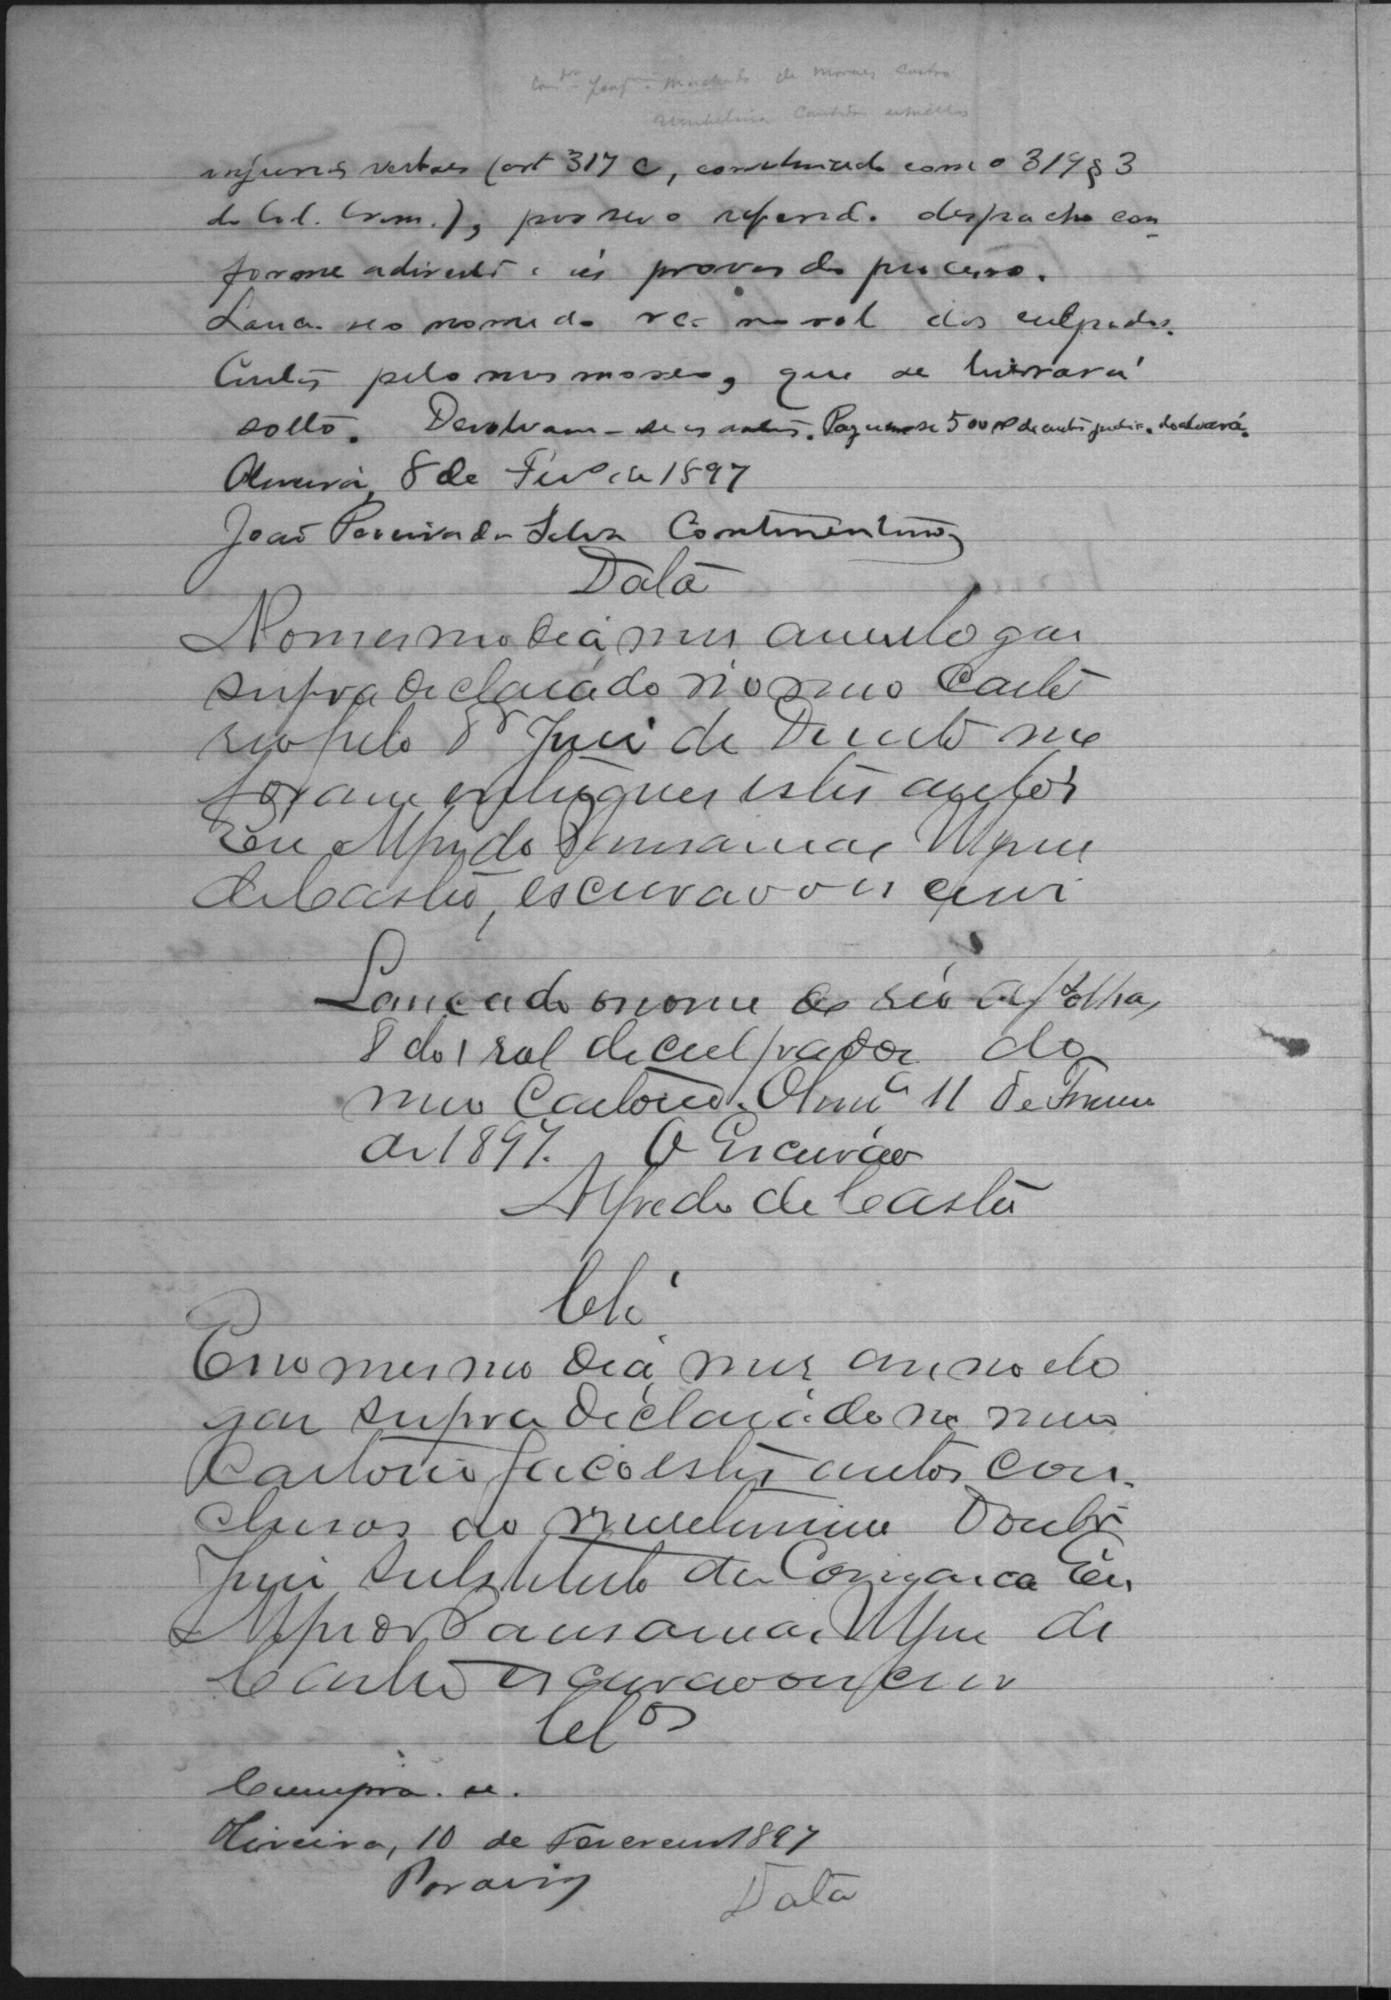 de Moraes Castro
injurias verbaes (art 317 c, combinado com o 319 § 3
do Cod. Crim.), por ser o referido despacho con-
forme a direito e ás provas do processo.
Lance-se o nome do réo no rol dos culpados.
Custas pelo mesmo reo, que se livrará
solto. Devolvam-se os autos. Pague-se 500 rs de
Oliveira, 8 de Fevo de 1897
João Pereira da Silva Continentino
Data
No mesmo dia, mes anno e lo gar
supra declarado no meo Carto
rio pelo Dr Juiz de Direito me
foram entregues estes autos
Eu Alfredo de Castro, escrivão o escrevi
Lançado o nome do réo a folhas
8 do rol de culpados do
meo Cartorio. Olivra 11 de Fevero
de 1897. O Escrivão
Alfredo de Castro
Cls
E no mesmo dia, mes anno e lo
gar supra declarado no meo
Cartorio faço estes autos con-
clusos ao meretissimo Doutor
Juiz Substituto da Comarca Eu
Alfredo de
Castro escrivão o escrevi
Clos
Cumpra-se.
Oliveira, 10 de Fevereiro 1897
Data